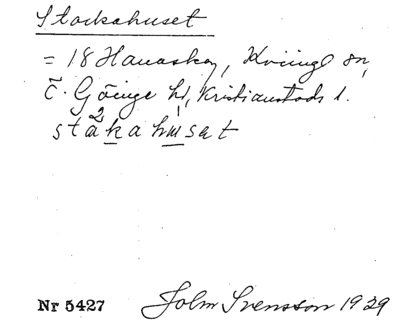 Stockahuset
= 18 Hanaskog, Kviinge sn,
Ö. Göinge hd, Kristianstads l.
ståkahusat
Nr 5427 John Svensson 1929